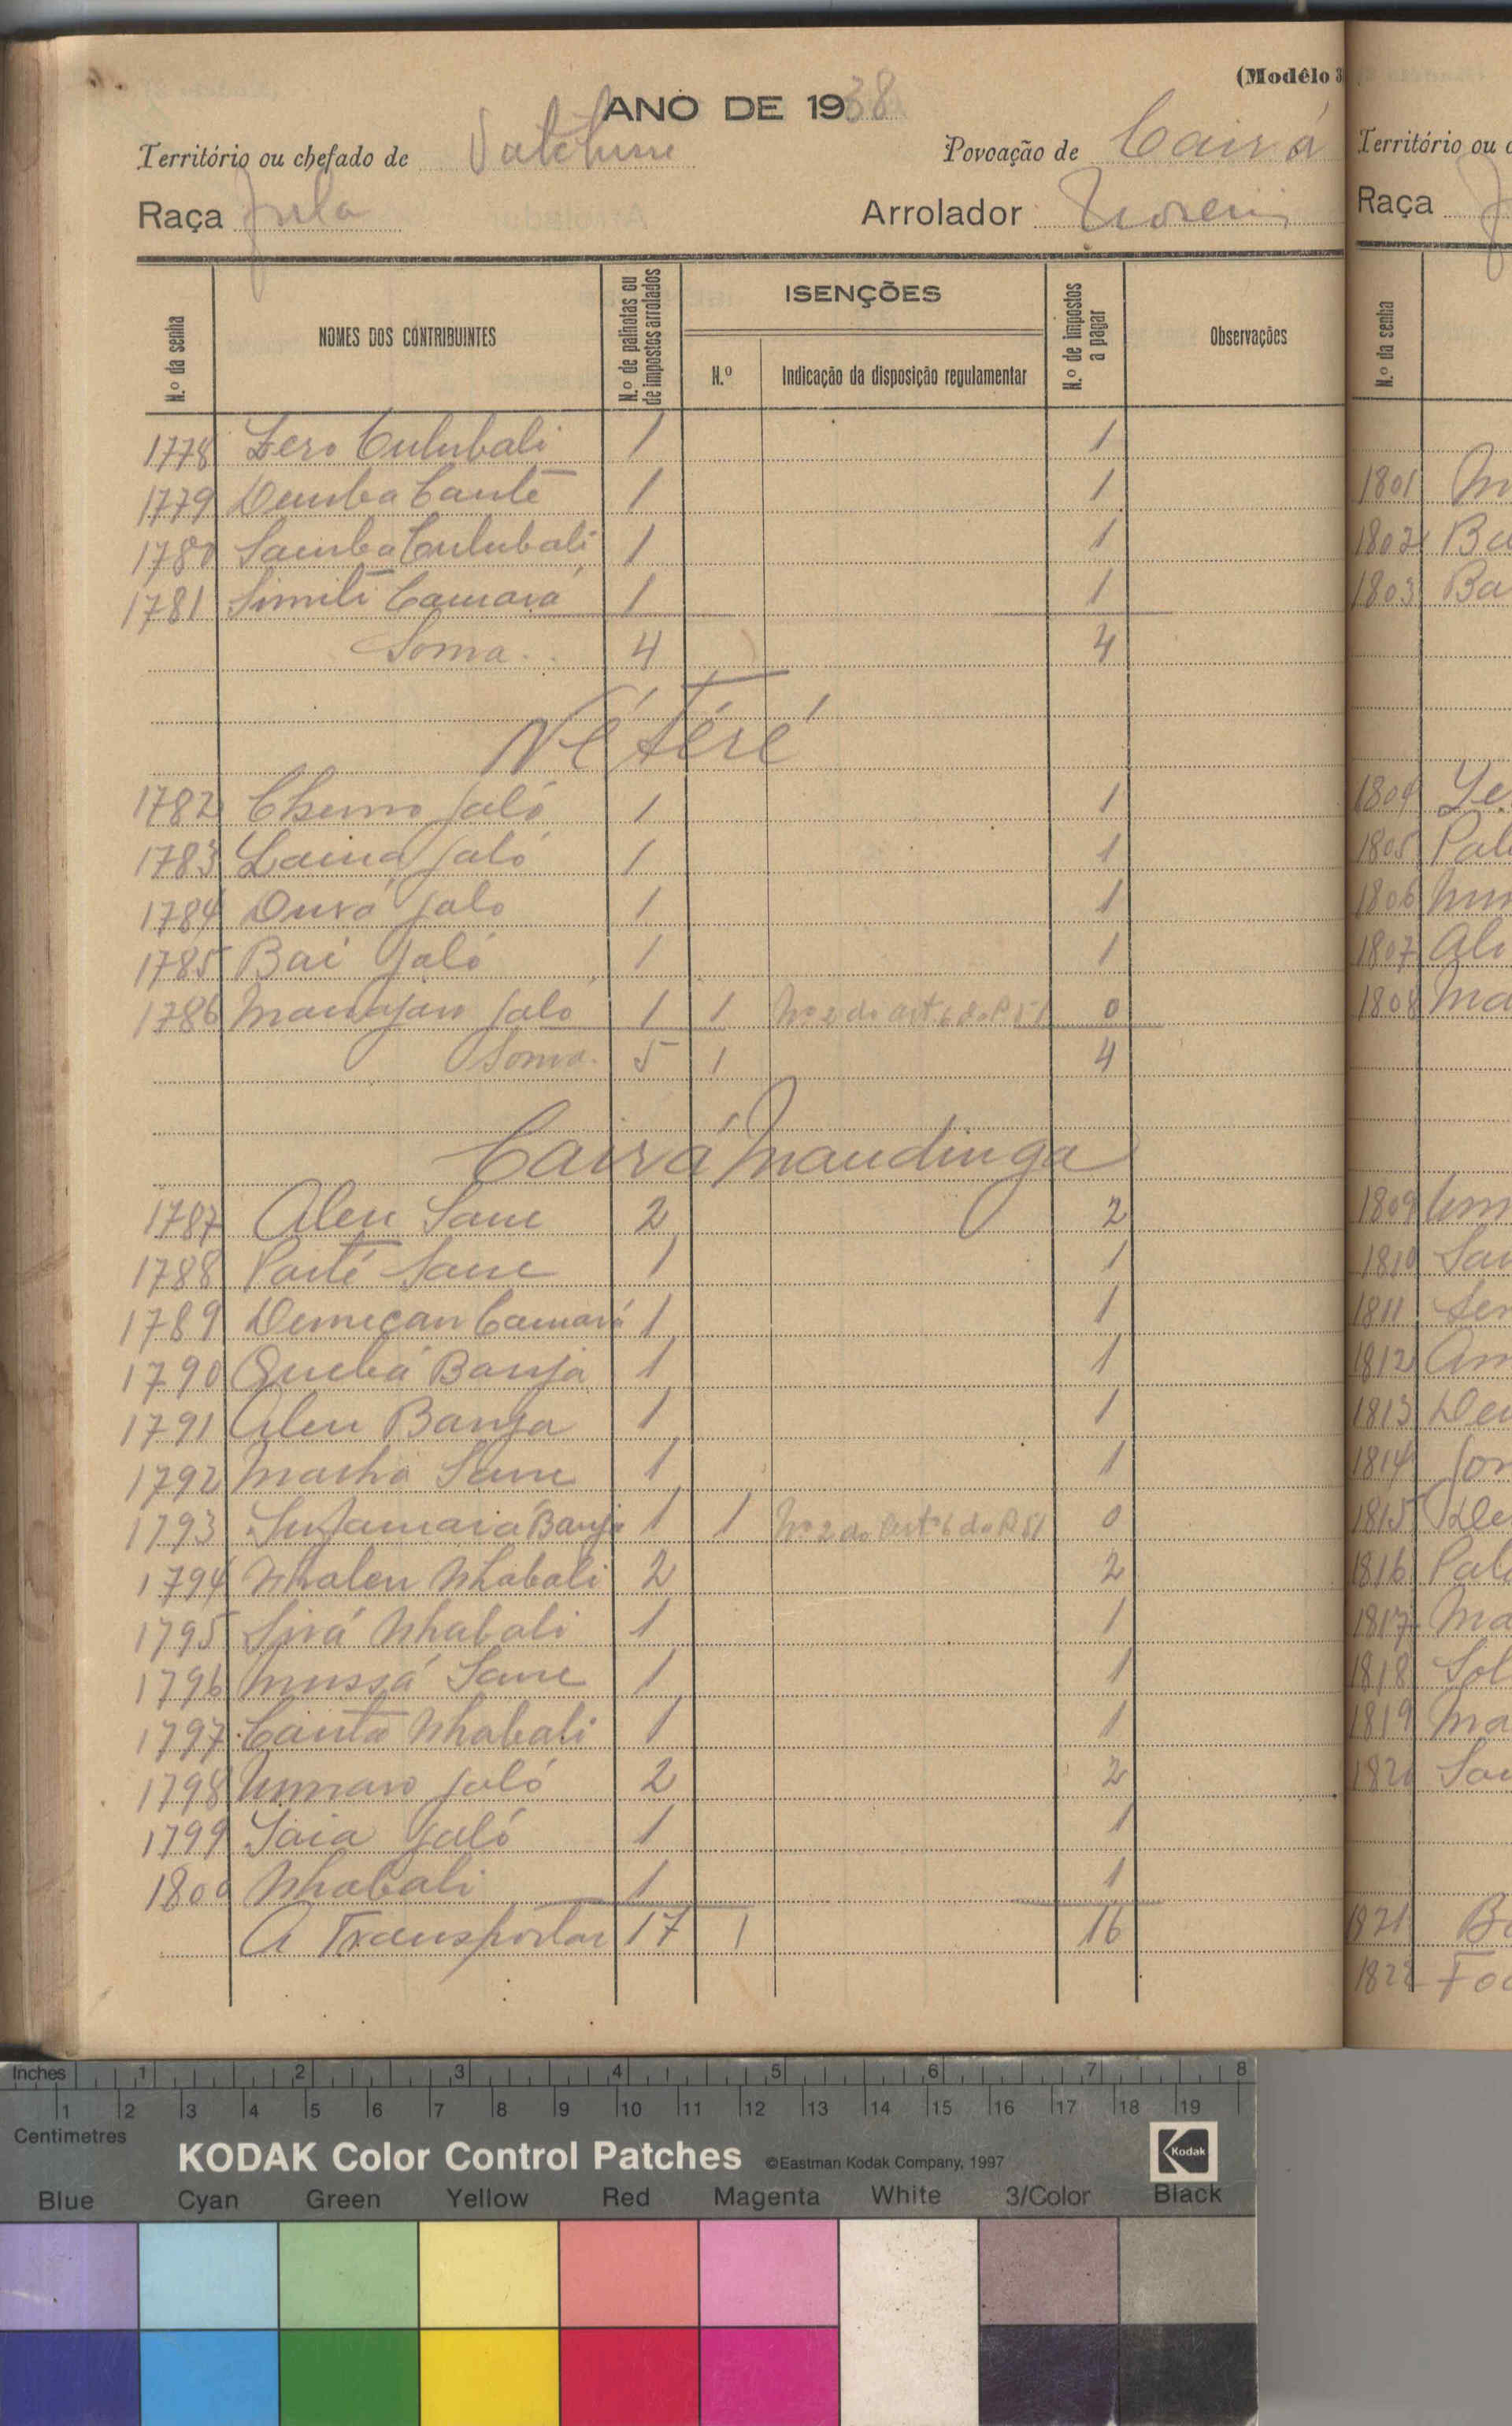 (Modêlo 3
ANO DE 1938
Território ou chefado de Povoação de Cairá
Raça Fula Arrolador
N.º da senha NOMES DOS CONTRIBUINTES N.º de palhotas ou de impostos arrolados ISENÇÕES N.º de impostos a pagar Observações
N.º Indicação da disposição regulamentar
1778 Culubali 1 1
1779 Demba Canté 1 1
1780 Samba Culubali 1 1
1781 Simiti Camará 1 1
Soma .. 4 4
Nétéré
1782 Cherno Jaló 1 1
1783 Lainá Jaló 1 1
1784 Durá Jaló 1 1
1785 Bai Jaló 1 1
1786 Mamajan Jaló 1 1 Nº 2 do artº 6 do R 51 0
Soma. 5 1 4
Cairá Mandinga
1787 Aleu Sane 2 2
1788 Paté Sane 1 1
1789 Demeçan Camará 1 1
1790 Quebá Banja 1 1
1791 Aleu Banja 1 1
1792 Sane 1 1
1793 Banja 1 1 Nº 2 do artº 6 do R 51 0
1794 Nhaleu Nhabali 2 2
1795 Sirá Nhabali 1 1
1796 Mussá Sane 1 1
1797 Canta Nhabali 1 1
1798 Ummaro Jaló 2 2
1799 Saia Jaló 1 1
1800 Nhabali 1 1
A Transportar 17 1 16
Território ou c
Raça
N.º da senha
1801
1802 Ba
1803 Ba
1804
1805
1806
1807 Ali
1808 Ma
1809
1810
1811
1812
1813
1814
1815
1816
1817 Ma
1818
1819 Ma
1820
1821
1822
Inches 1 2 3 4 5 6 7 8
1 2 3 4 5 6 7 8 9 10 11 12 13 14 15 16 17 18 19
Centimetres
KODAK Color Control Patches ©Eastman Kodak Company, 1997 Kodak
Blue Cyan Green Yellow Red Magenta White 3/Color Black